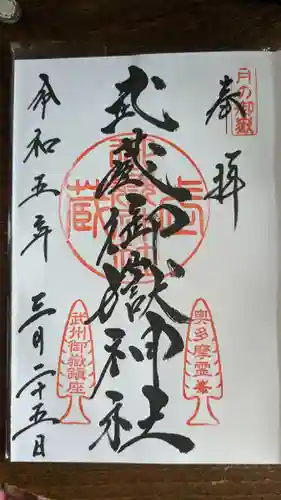 月の御嶽
奉拝
武蔵御嶽神社
奥多摩霊峯
武州御嶽鎮座
令和五年
三月二十五日